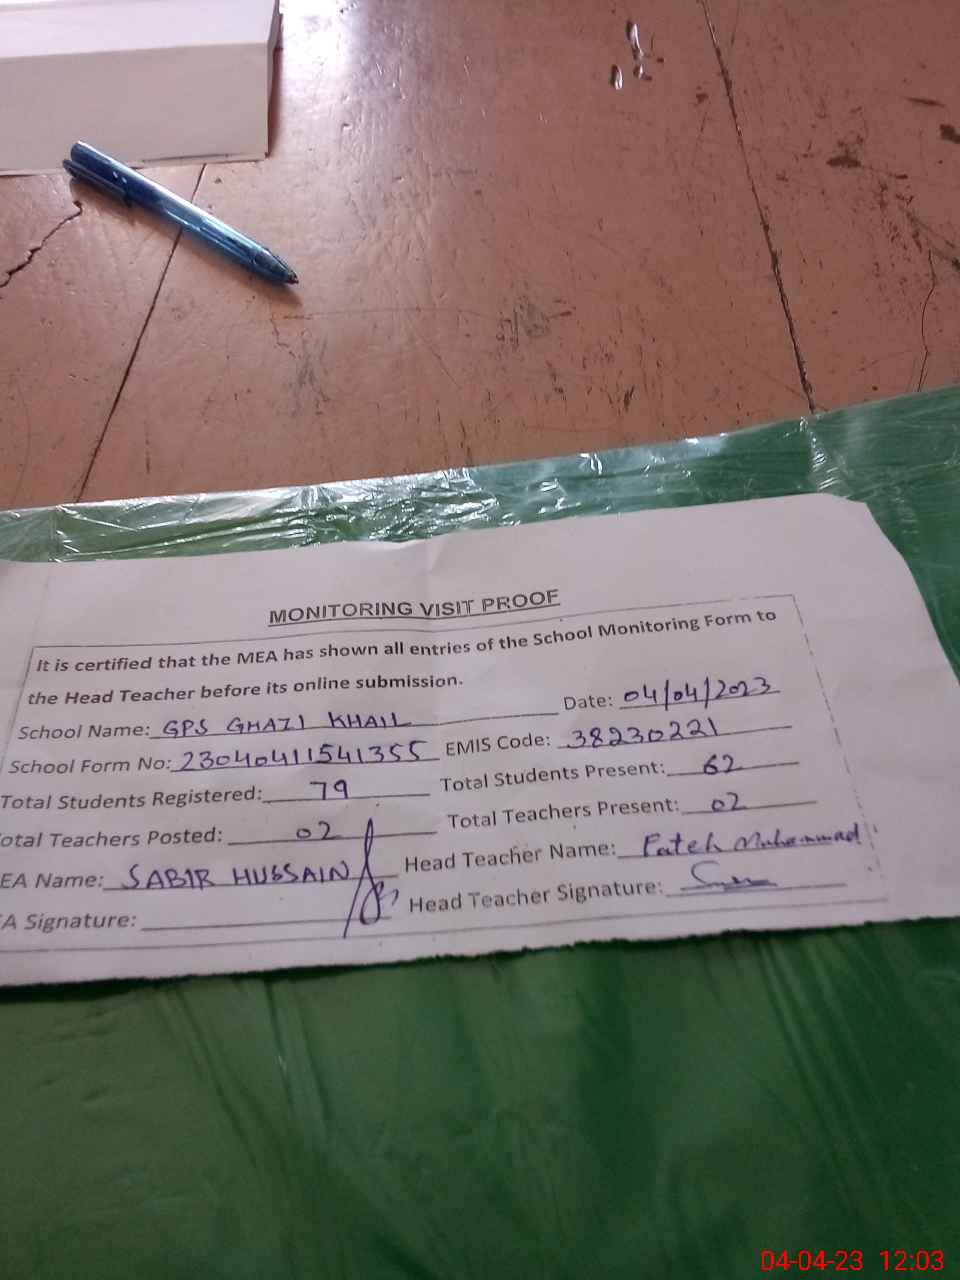 MONITORING VISIT PROOF
It is certified that the MEA has shown all entries of the School Monitoring Form to
the Head Teacher before its online submission.
School Name: GPS GHAZI KHAIL Date: 04/04/2023
School Form No: 23040411541355 EMIS Code: 38230221
Total Students Registered: 79 Total Students Present: 62
otal Teachers Posted: 02 Total Teachers Present: 02
EA Name: SABIR HUSSAIN Head Teacher Name: Fateh Muhammad
A Signature: Head Teacher Signature:
04-04-23 12:03